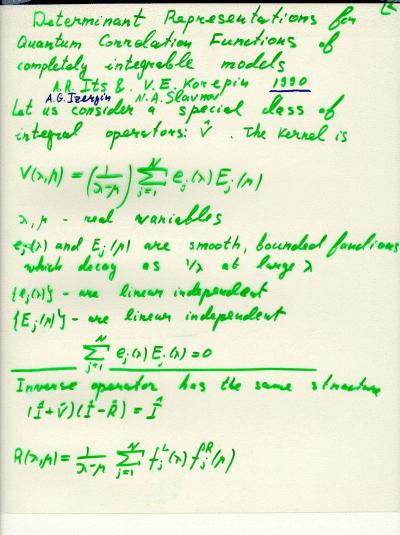 Determinant Representations for
Quantum Correlation Functions of
completely integrable models
A.R. Its & V.E. Korepin 1990
A.G. Izergin N.A. Slavnov
Let us consider a special class of
integral operators: V̂. The kernel is
V(λ,μ) = (1/(λ-μ)) ∑_{j=1}^{N} e_j(λ) E_j(μ)
λ, μ - real variables
e_j(λ) and E_j(μ) are smooth, bounded functions
which decay as 1/λ at large λ
{e_j(λ)} - are linear independent
{E_j(μ)} - are linear independent
∑_{j=1}^{N} e_j(λ) E_j(λ) = 0
Inverse operator has the same structure
(Î+V̂)(Î-R̂) = Î
R(λ,μ) = 1/(λ-μ) ∑_{j=1}^{N} f_j^L(λ) f_j^R(μ)